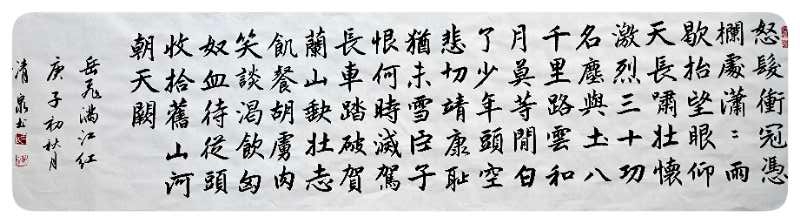 怒髮衝冠憑
欄處瀟〻雨
歇抬望眼仰
天長嘯壯懷
激烈三十功
名塵與土八
千里路雲和
月莫等閒白
了少年頭空
悲切靖康恥
猶未雪臣子
恨何時滅駕
長車踏破賀
蘭山缺壯志
飢餐胡虜肉
笑談渴飲匈
奴血待從頭
收拾舊山河
朝天闕
岳飛滿江紅
庚子初秋月
清泉书